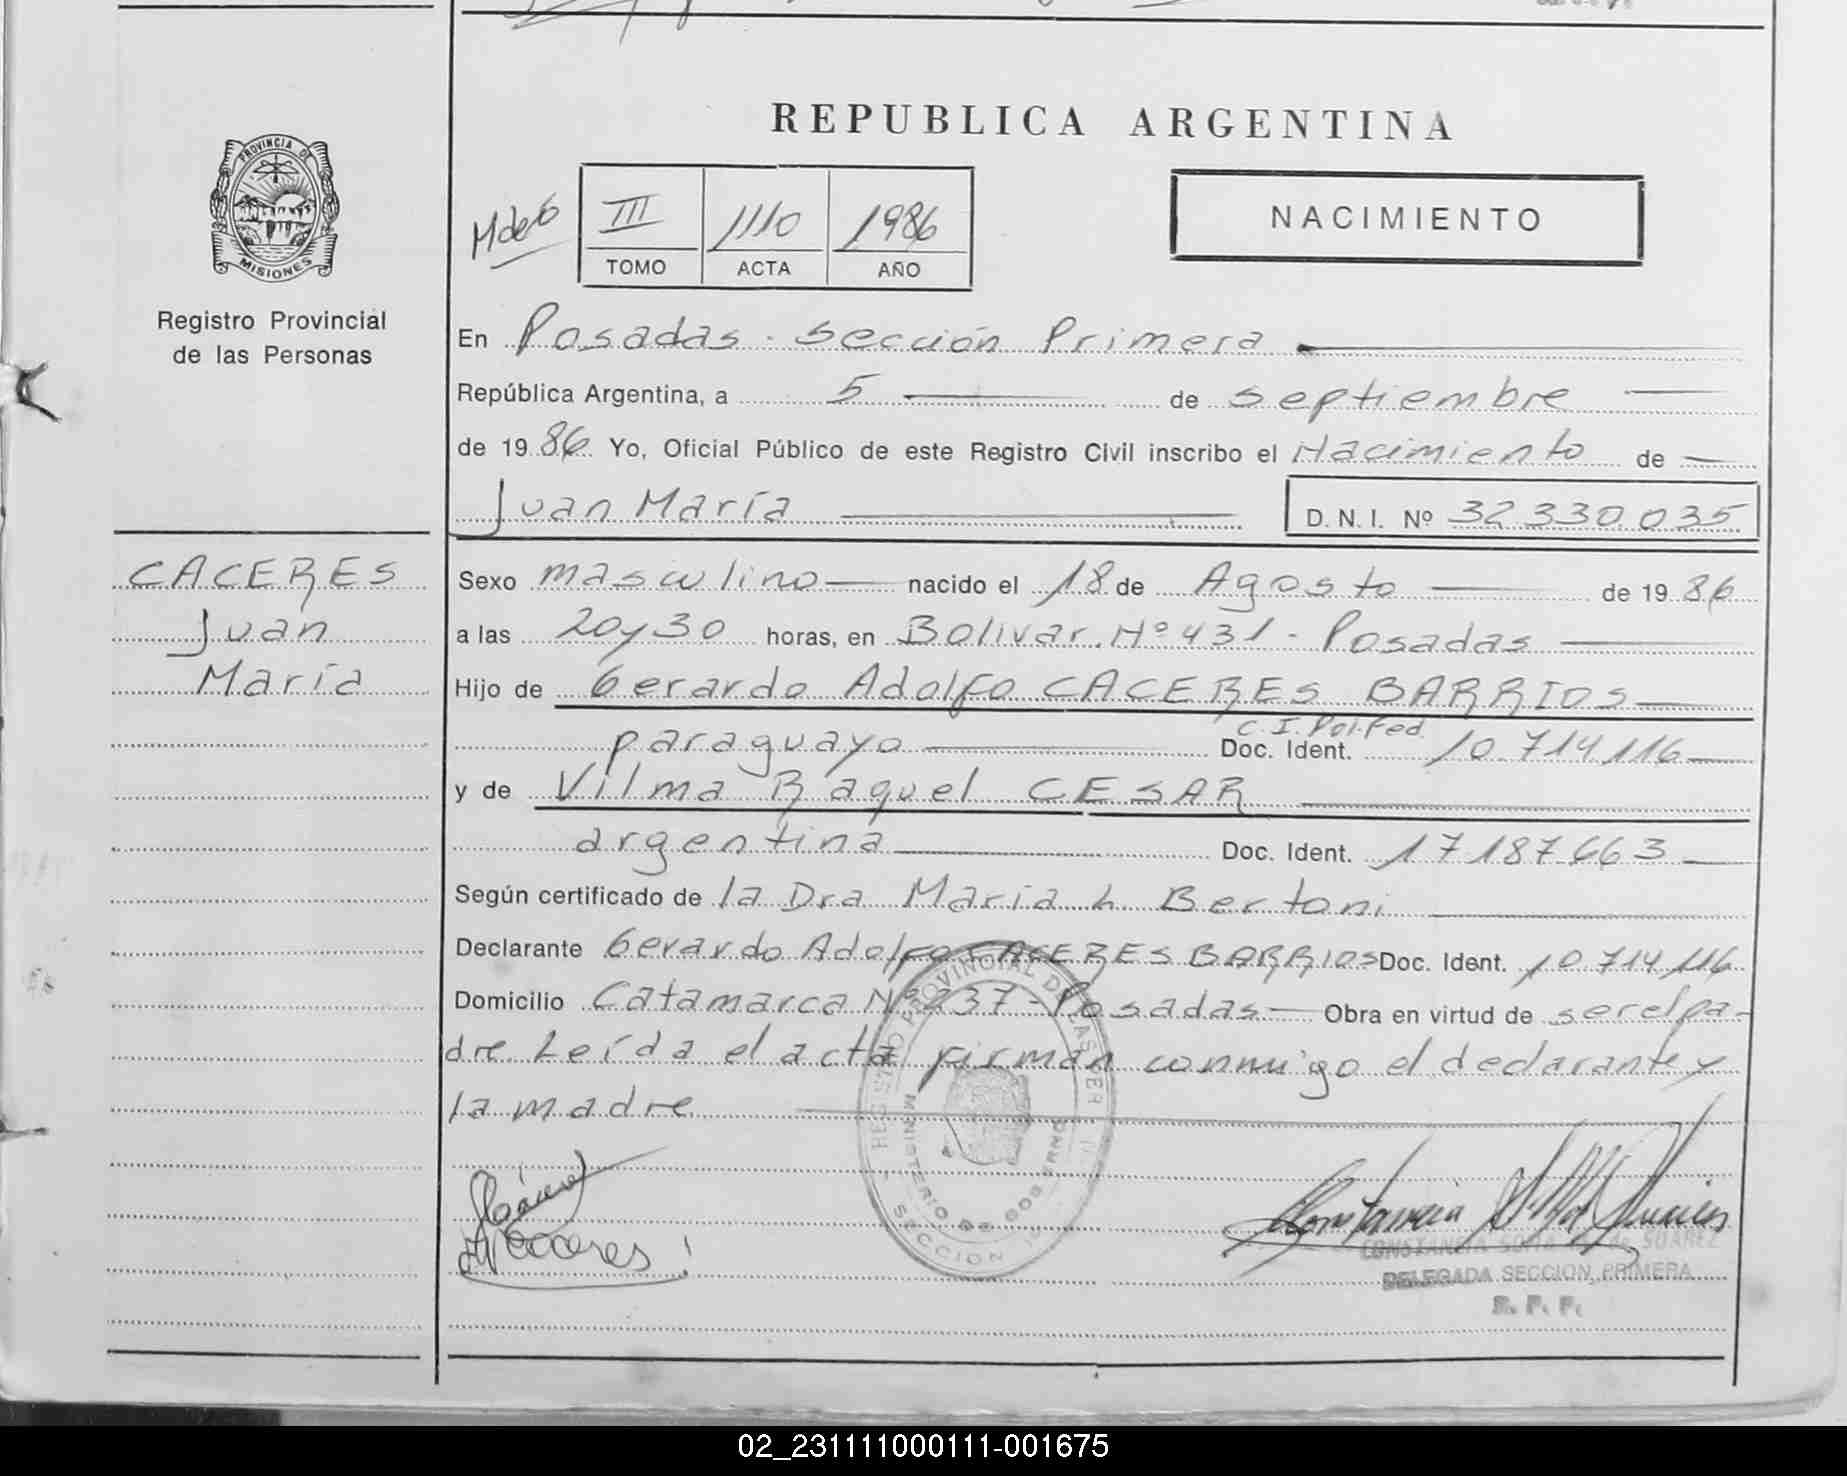 REPUBLICA ARGENTINA
PROVINCIA DE
MISIONES
Registro Provincial
de las Personas
III 1110 1986
TOMO ACTA AÑO
NACIMIENTO
En Posadas. Sección Primera
República Argentina, a 5 de septiembre
de 1986 Yo, Oficial Público de este Registro Civil inscribo el Nacimiento de
Juan María D.N.I. Nº 32 330 035
CACERES
Juan
María
Sexo masculino nacido el 18 de Agosto de 1986
a las 20 y 30 horas, en Bolivar Nº 431 - Posadas
Hijo de Gerardo Adolfo CACERES BARRIOS
paraguayo C.I. Pol. Fed. Doc. Ident. 10 714 116
y de Vilma Raquel CESAR
argentina Doc. Ident. 17 187 663
Según certificado de la Dra María L Bertoni
Declarante Gerardo Adolfo CACERES BARRIOS Doc. Ident. 10 714 116
Domicilio Catamarca Nº 237 - Posadas Obra en virtud de ser el pa-
dre Leída el acta firman conmigo el declarante y
la madre
REGISTRO PROVINCIAL DE LAS PER
MINISTERIO DE GOBIERNO
SECCION 1º
CONSTANCIA SOFIA de SUAREZ
DELEGADA SECCION PRIMERA
R. P. P.
02_231111000111-001675